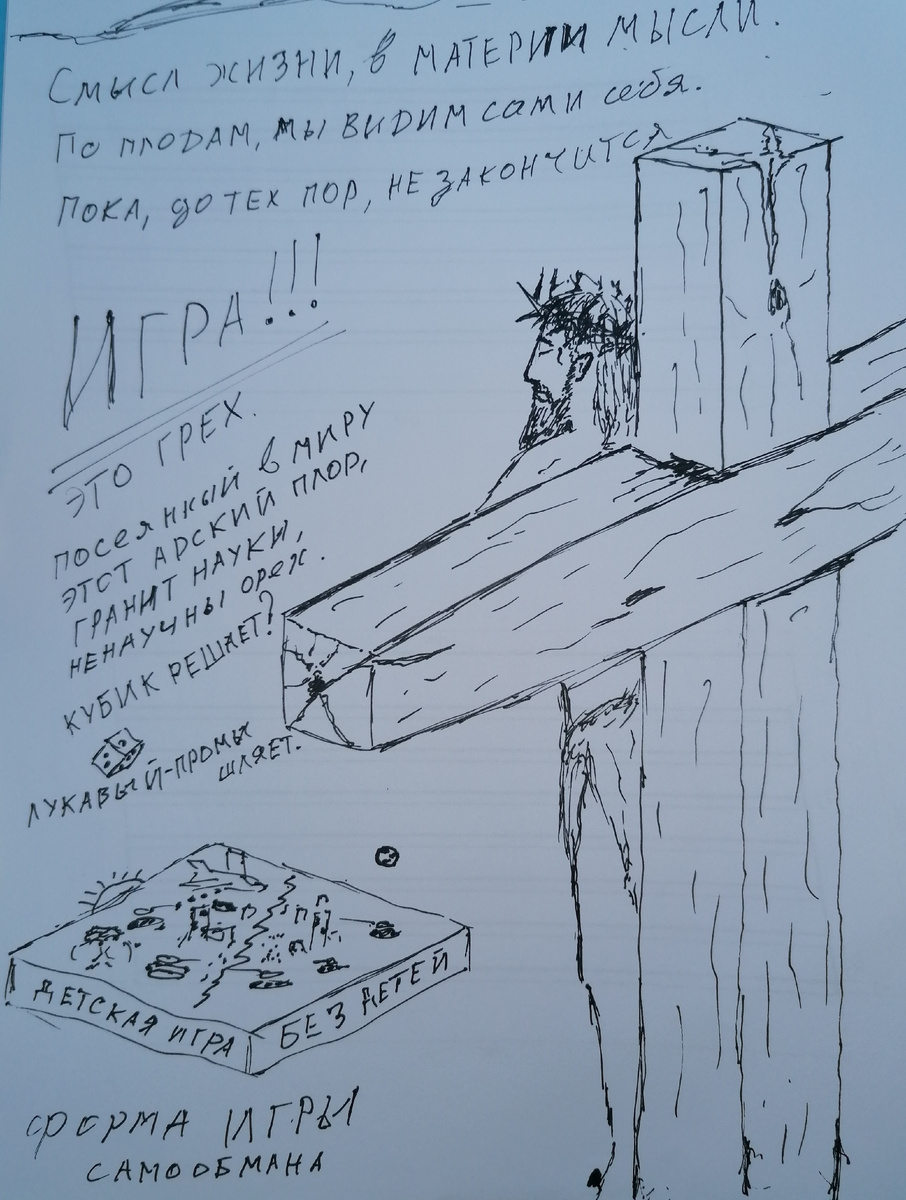 Смысл жизни, в материи мысли.
По плодам, мы видим сами себя.
Пока, до тех пор, не закончится
ИГРА!!!
ЭТО ГРЕХ.
посеянный в миру
этот арский плор,
гранит науки,
ненаучны орех.
Кубик решает?
лукавый-промы
шляет.
ДЕТСКАЯ ИГРА
БЕЗ ДЕТЕЙ
ФОРМА ИГРЫ
САМООБМАНА